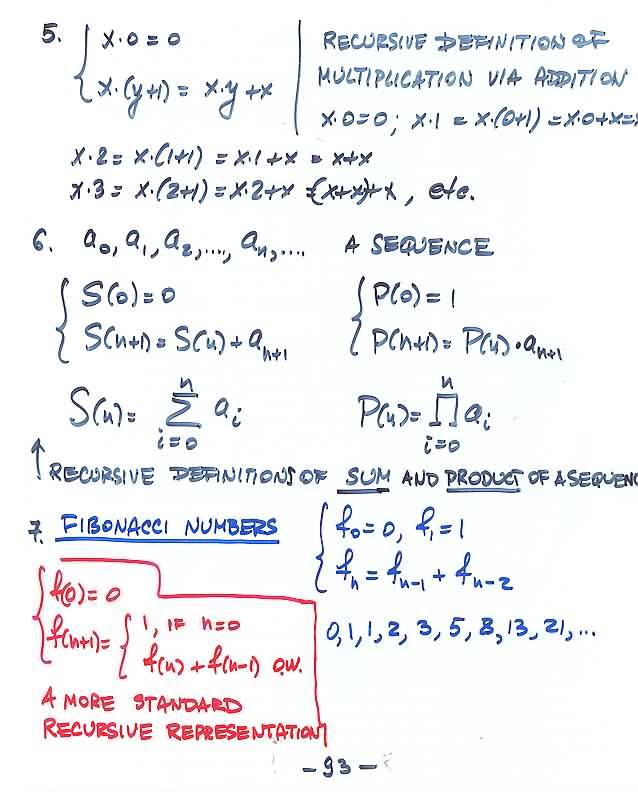 5. { x·0=0
x·(y+1) = x·y+x
RECURSIVE DEFINITION OF
MULTIPLICATION VIA ADDITION
x·0=0; x·1 = x·(0+1) = x·0+x=x
x·2 = x·(1+1) = x·1+x = x+x
x·3 = x·(2+1) = x·2+x = (x+x)+x, etc.
6. a₀, a₁, a₂, ..., aₙ, ... A SEQUENCE
{ S(0) = 0
S(n+1) = S(n) + aₙ₊₁
{ P(0) = 1
P(n+1) = P(n)·aₙ₊₁
S(n) = ∑ⁿᵢ₌₀ aᵢ
P(n) = ∏ⁿᵢ₌₀ aᵢ
↑ RECURSIVE DEFINITIONS OF SUM AND PRODUCT OF A SEQUENC
7. FIBONACCI NUMBERS
{ f₀=0, f₁=1
fₙ = fₙ₋₁ + fₙ₋₂
0, 1, 1, 2, 3, 5, 8, 13, 21, ...
{ f(0) = 0
f(n+1) = { 1, IF n=0
f(n) + f(n-1) O.W.
A MORE STANDARD
RECURSIVE REPRESENTATION
-93-